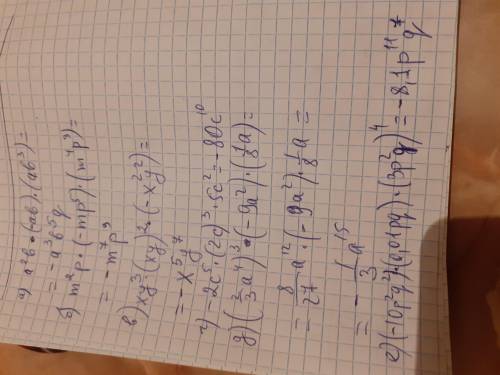 а) a²b·(-ab)·(ab³)=
= -a³b⁵q
б) m²p·(-mp⁵)·(m⁴p³)=
= -m⁷p⁹
в) xy³·(xy)²·(-x²y²)=
= -x⁵y⁷
г) -2c⁵·(2c)³·5c²=-80c¹⁰
д) (2/3a⁴)³·(-9a²)·(1/8a)=
= 8/27a¹²·(-9a²)·1/8a =
= -1/3a¹⁵
е) (-10p²q²)·(0,01pq)·(3p²q)⁴=-8,1p¹¹q⁷